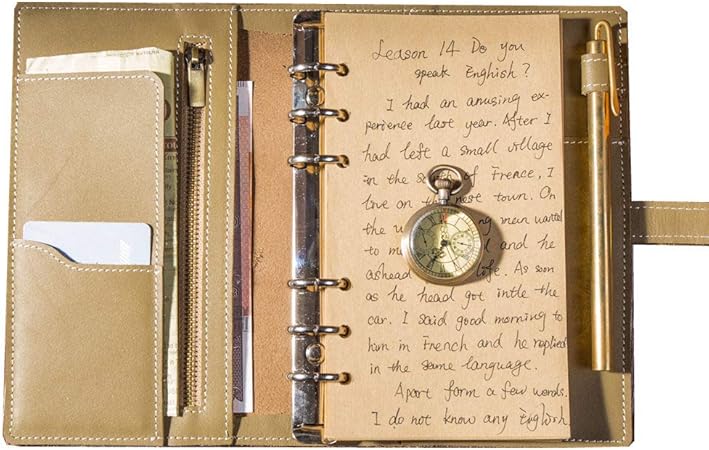 Leason 14 Do you
speak Enghish ?
I had an amusing ex-
perience last year. After I
had left a small village
in the of Frence, I
live on nest town. On
the man wantd
to m and he
ashead life. As soon
as he head got intle the
car. I said good morning to
him in French and he roplied
in the same language.
Apart form a few words.
I do not know any English